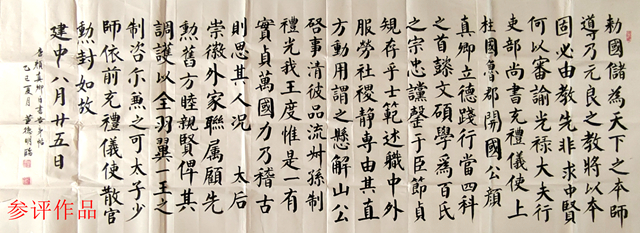 勅國儲為天下之本師
導乃元良之教將以本
固必由教先非求中賢
何以審諭光祿大夫行
吏部尚書充禮儀使上
柱國魯郡開國公顏
真卿立德踐行當四科
之首懿文碩學為百氏
之宗忠讜罄于臣節貞
規存乎士範述職中外
服勞社稷靜專由其直
方動用謂之懸解山公
啓事清彼品流州孫制
禮光我王度惟是一有
實貞萬國力乃稽古
則思其人況 太后
崇徽外家聯属顧先
勲舊方睦親賢俾其
調護以全羽翼一王之
制咨尓兼之可太子少
師依前充禮儀使散官
勲封如故
建中八月廿五日
唐顏真卿自書告身帖
夏月 董德明臨
参评作品